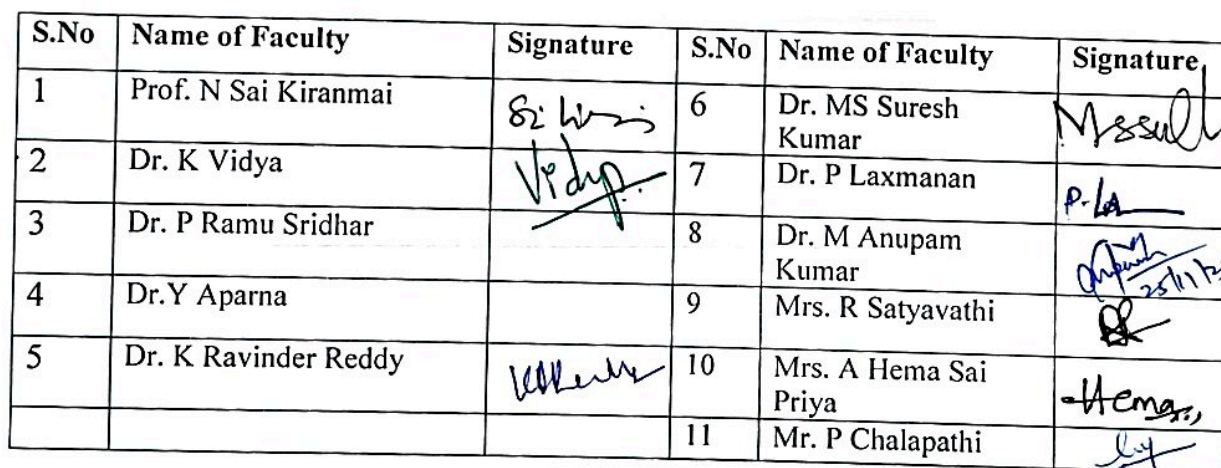 S.No Name of Faculty Signature S.No Name of Faculty Signature
1 Prof. N Sai Kiranmai 6 Dr. MS Suresh
Kumar
2 Dr. K Vidya Vidya 7 Dr. P Laxmanan
3 Dr. P Ramu Sridhar 8 Dr. M Anupam
Kumar
4 Dr.Y Aparna 9 Mrs. R Satyavathi
5 Dr. K Ravinder Reddy 10 Mrs. A Hema Sai
Priya Hema
11 Mr. P Chalapathi